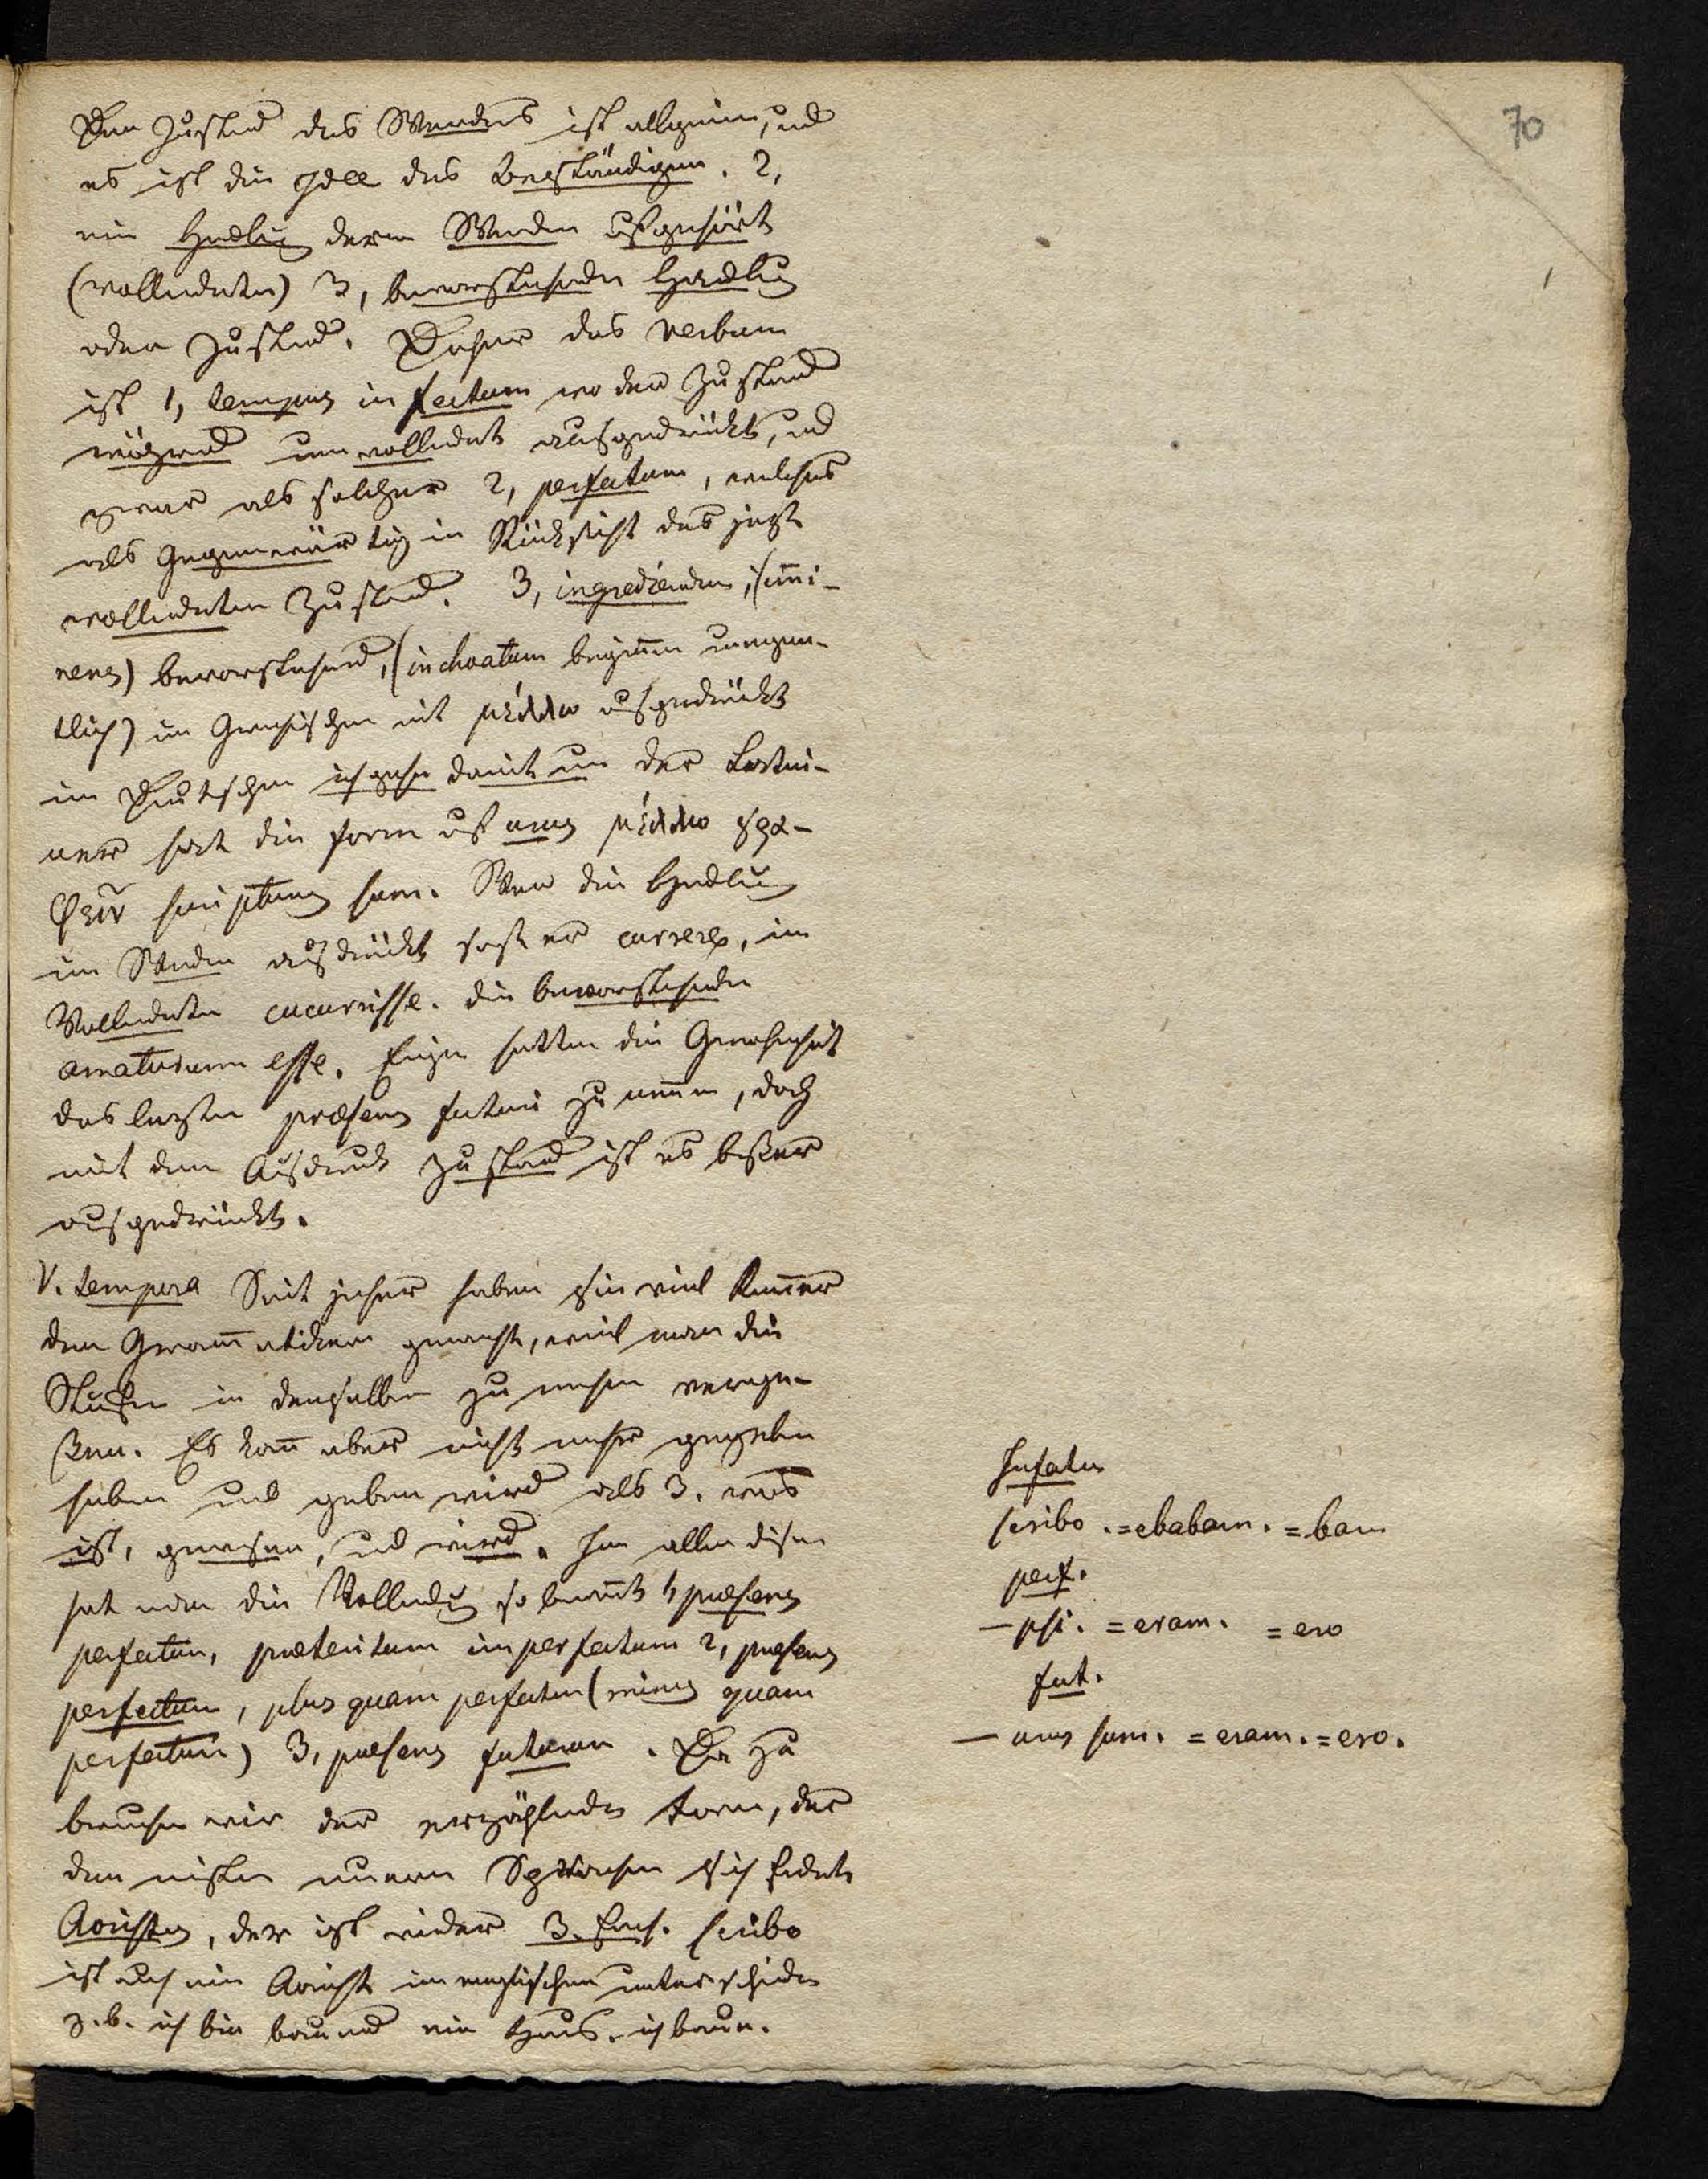 70
Der Zustand des Werdens ist allgemein, und
es ist die Idee des beständigen. 2,
ein Handlung deren Werden aufgehört
(vollendeten) 3, bevorstehende Handlung
oder Zustand. Daher das verbum
ist 1, tempus infectum wo der Zustand
während unvollendet ausgedrückt, und
zwar als solcher 2, perfectum, welches
als Gegenwärtig in Rücksicht des jezt
vollendeten Zustand. 3, ingrediendum, (immi-
nens) bevorstehend, (inchoatum beginnen uneigen-
tlich) im Griechischen mit μέλλω ausgedrückt
im Deutschen ich gehe damit um der Latei-
ner hat die form auf urus μέλλω γρα-
φειν scripturus sum. Wenn die Handlung
im Werden ausdrückt sagt er currere, im
Vollendeten cucurrisse. die bevorstehende
amaturum esse. Einige hatten die Gewohnheit
das leztere præsens futuri zu nennen, doch
mit dem Ausdruck Zustand ist es beßer
ausgedrückt.
V. tempora Seit jeher haben sie viel Kummer
den Grammatikern gemacht, weil man die
Stufen in denselben zu nehmen verge-
ßen. Es kann aber nicht mehr gegeben
haben und geben wird als 3. was
ist, gewesen, und wird. In allen disen
hat man die Vollendung so benennt 1, præsens
perfectum, præteritum imperfectum 2, præsens
perfectum, plus quam perfectum (minus quam
perfectum) 3, præsens futurum. Da zu
brauchen wir der erzählenden form, der
den meisten neuern Sprachen sich findet
Aoristus, der ist wieder 3.fach. scribo
ist auch ein Aorist im englischen unterschieden
z.b. ich bin bauend ein Haus. ich baue.
Infectum
scribo . =ebabam. =bam
perf.
— psi. =eram. =ero
fut.
— urus sum. =eram. =ero.